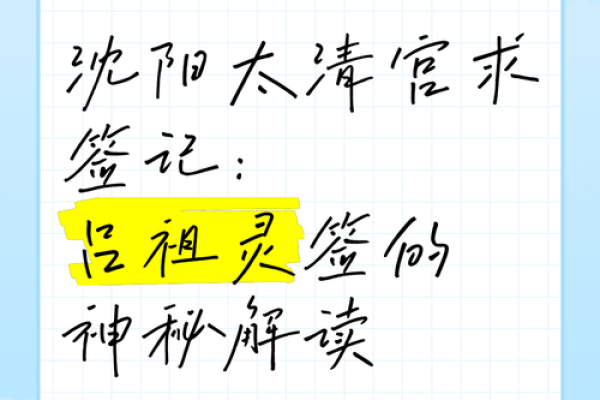 沈阳太清宫求
签记：
吕祖灵签的
神秘解读